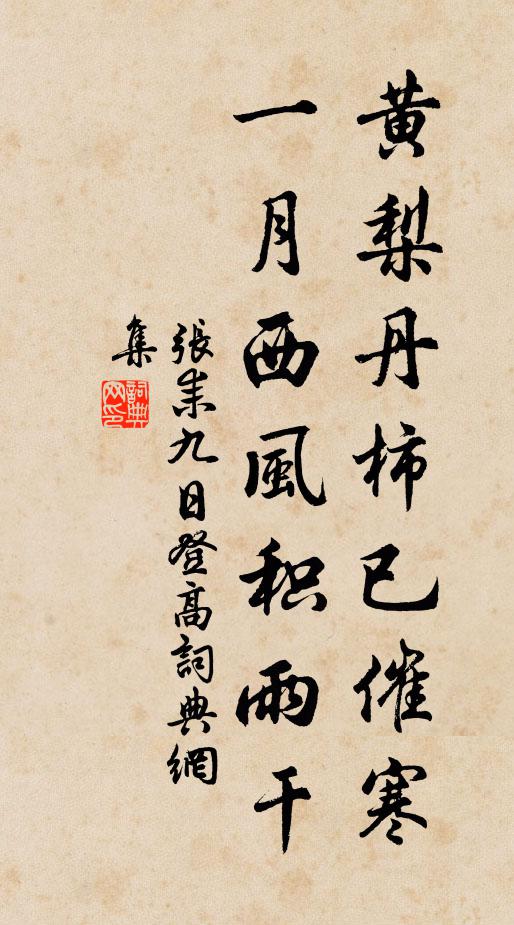 黃梨丹柿已催寒
一月西風积雨干
張耒九日登高詞典網
集
詞典
网印